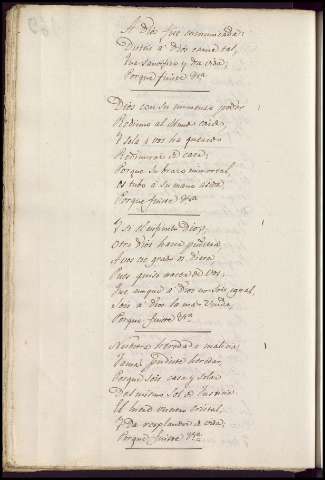 A Dios fue comunicada:
Disteis a Dios carne tal,
Que santifica y da vida;
Porque fuisse &ra
Dios con su inmenso poder
Redimio al Mundo caido,
Y sola a vos ha querido
Redimiros de caer;
Porque su brazo inmortal,
os tubo a su mano asida
Porque fuisse &ra
Y si el infinito Dios,
Otro Dios hacer pudiera,
A vos ese grado os diera
Pues quiso nacer de vos,
Que aunque a Dios no sois igual,
Sois a Dios la mas Unida,
Porque fuisse &ra
Nuestra heredada malicia
Jamas pudiste heredar,
Porque sois casa y solar
Del mismo Sol de Justicia
El busco vuestro cristal,
Y da resplandor de vida,
Porque fuisse &ra